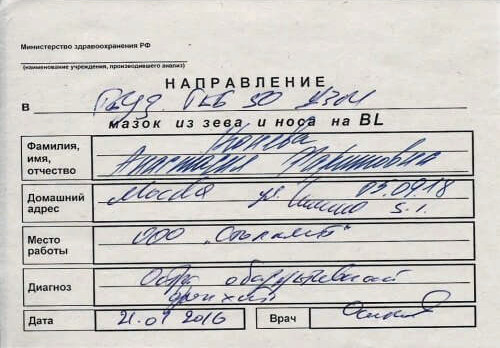 Министерство здравоохранения РФ
(наименование учреждения, производившего анализ)
НАПРАВЛЕНИЕ
В ГБУЗ ГКБ 50 УЗМ
мазок из зева и носа на BL
Фамилия, имя, отчество
Анастасия
Домашний адрес Москва ул. 05.09.18
5.1.
Место работы ООО
Диагноз Остр обструктивный
бронхит
Дата 21.01 2016 Врач